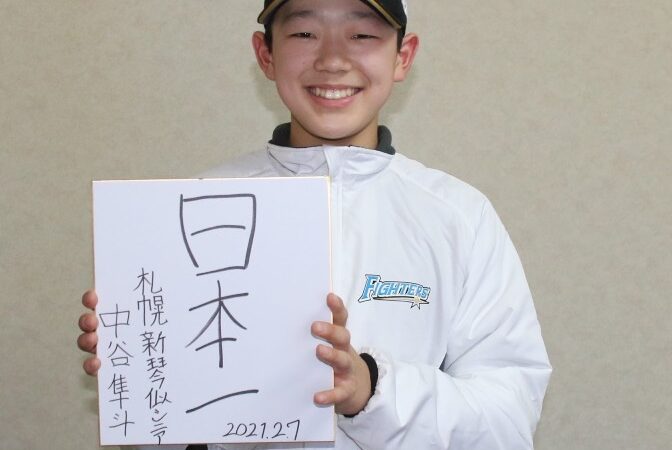 日本一
札幌新琴似シニア
中谷隼斗
2021.2.7
FIGHTERS